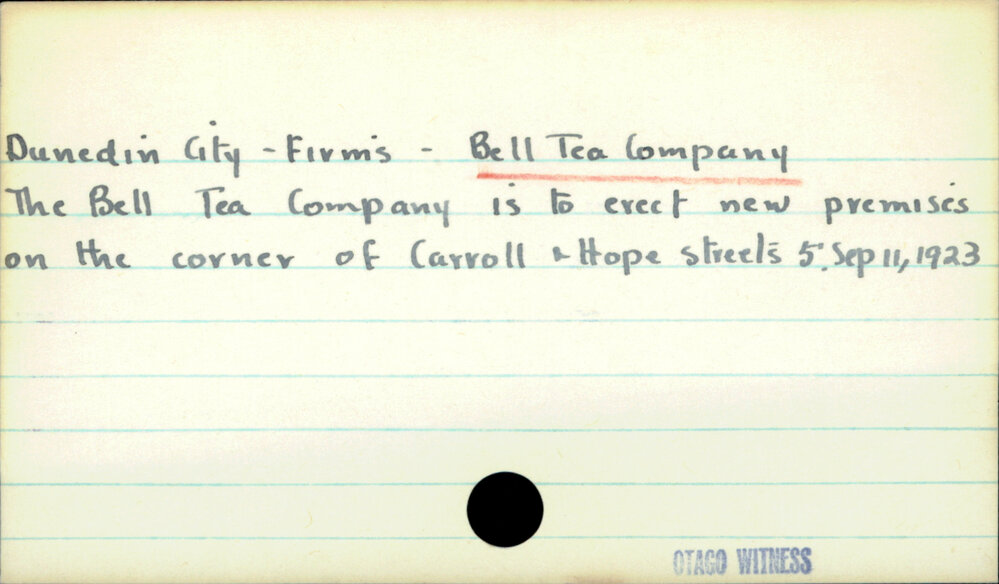 Dunedin City - Firms - Bell Tea Company
The Bell Tea Company is to erect new premises
on the corner of Carroll & Hope streets 5. Sep 11, 1923
OTAGO WITNESS